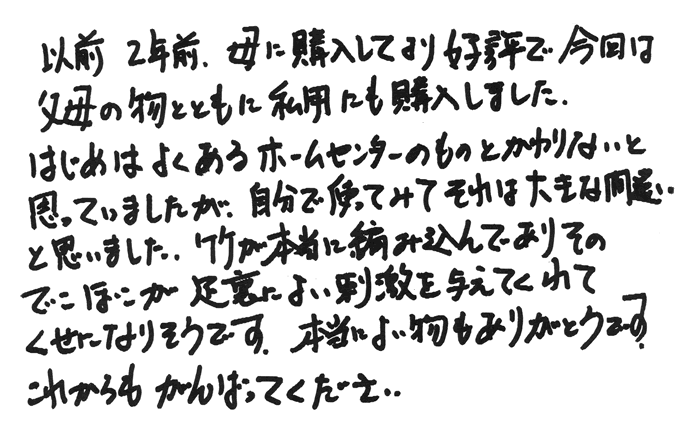 以前 2年前、母に購入しており好評で今回は
父母の物とともに私用にも購入しました.
はじめはよくあるホームセンターのものとかわりないと
思っていましたが、自分で使ってみてそれは大きな間違い
と思いました. 竹が本当に編み込んでありその
でこぼこが足裏によい刺激を与えてくれて
くせになりそうです. 本当によい物をありがとうです.
これからもがんばってください.